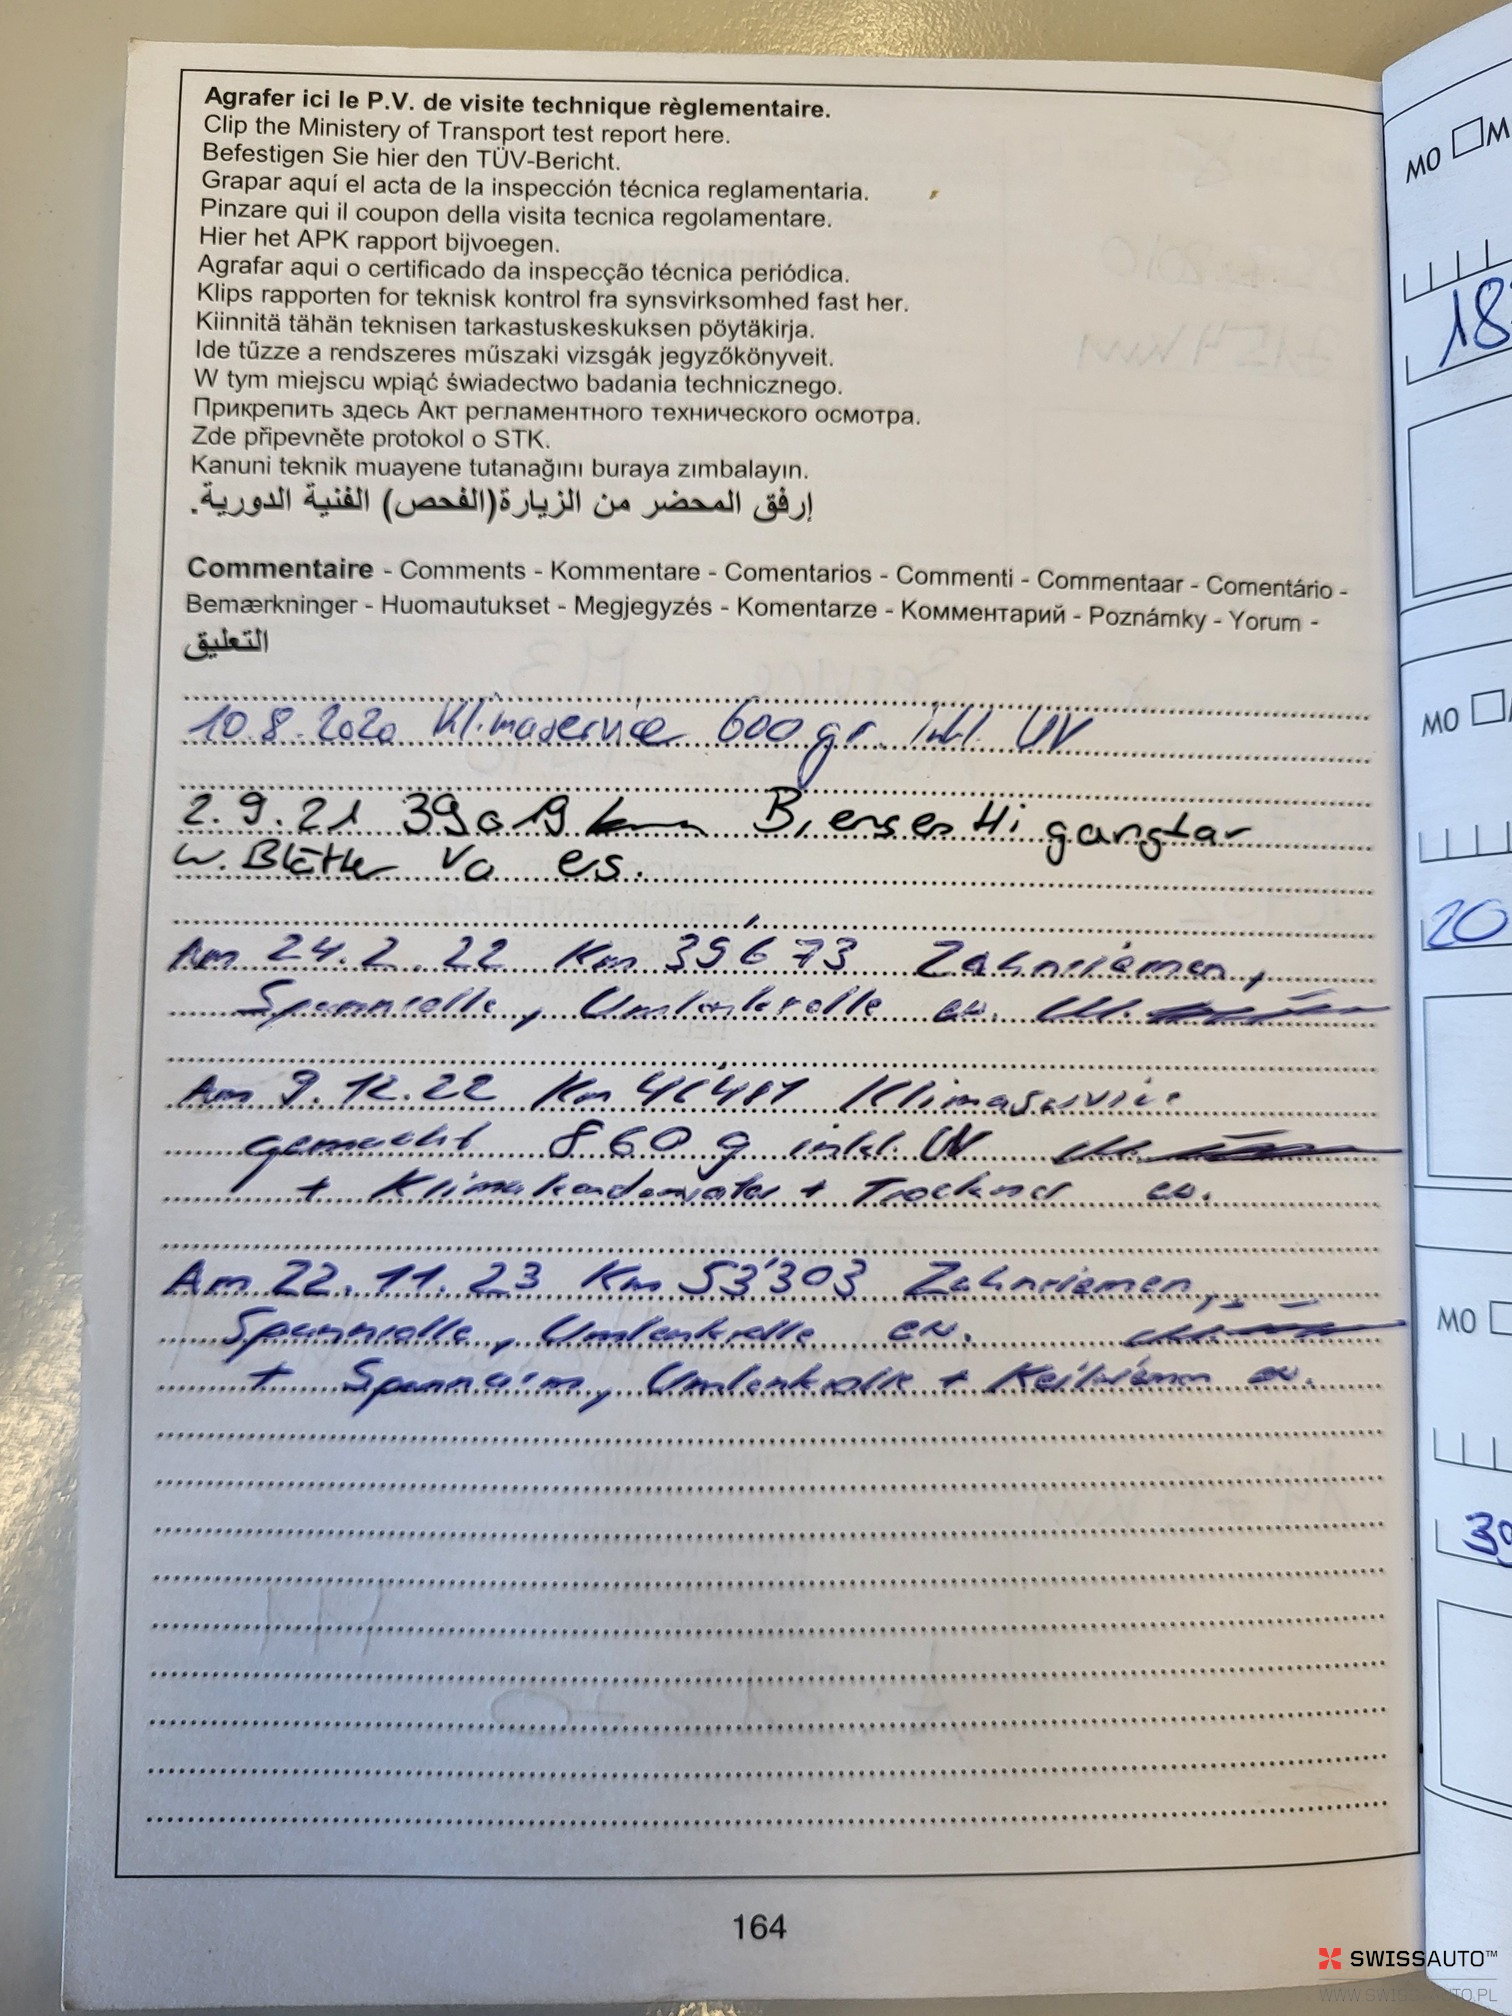 Agrafer ici le P.V. de visite technique règlementaire.
Clip the Ministery of Transport test report here.
Befestigen Sie hier den TÜV-Bericht.
Grapar aquí el acta de la inspección técnica reglamentaria.
Pinzare qui il coupon della visita tecnica regolamentare.
Hier het APK rapport bijvoegen.
Agrafar aqui o certificado da inspecção técnica periódica.
Klips rapporten for teknisk kontrol fra synsvirksomhed fast her.
Kiinnitä tähän teknisen tarkastuskeskuksen pöytäkirja.
Ide tűzze a rendszeres műszaki vizsgák jegyzőkönyveit.
W tym miejscu wpiąć świadectwo badania technicznego.
Прикрепить здесь Акт регламентного технического осмотра.
Zde připevněte protokol o STK.
Kanuni teknik muayene tutanağını buraya zımbalayın.
إرفق المحضر من الزيارة(الفحص) الفنية الدورية.
Commentaire - Comments - Kommentare - Comentarios - Commenti - Commentaar - Comentário -
Bemærkninger - Huomautukset - Megjegyzés - Komentarze - Комментарий - Poznámky - Yorum -
التعليق
10.8.2020 Klimaservice 600gr. inkl. UV
2.9.21 39019 km
w.
Am 24.2.22 Km 39'673 Zahnriemen,
Spannrolle, Umlenkrolle
Am 9.12.22 Km Klimaservice
gemacht 860 g inkl. UV
+ Klimakondensator + Trockner
Am 22.11.23 Km 53'303 Zahnriemen,
Spannrolle, Umlenkrolle
+ Spannarm, Umlenkrolle + Keilriemen
164
MO
18
MO
20
MO
SWISSAUTO™
WWW.SWISSAUTO.PL